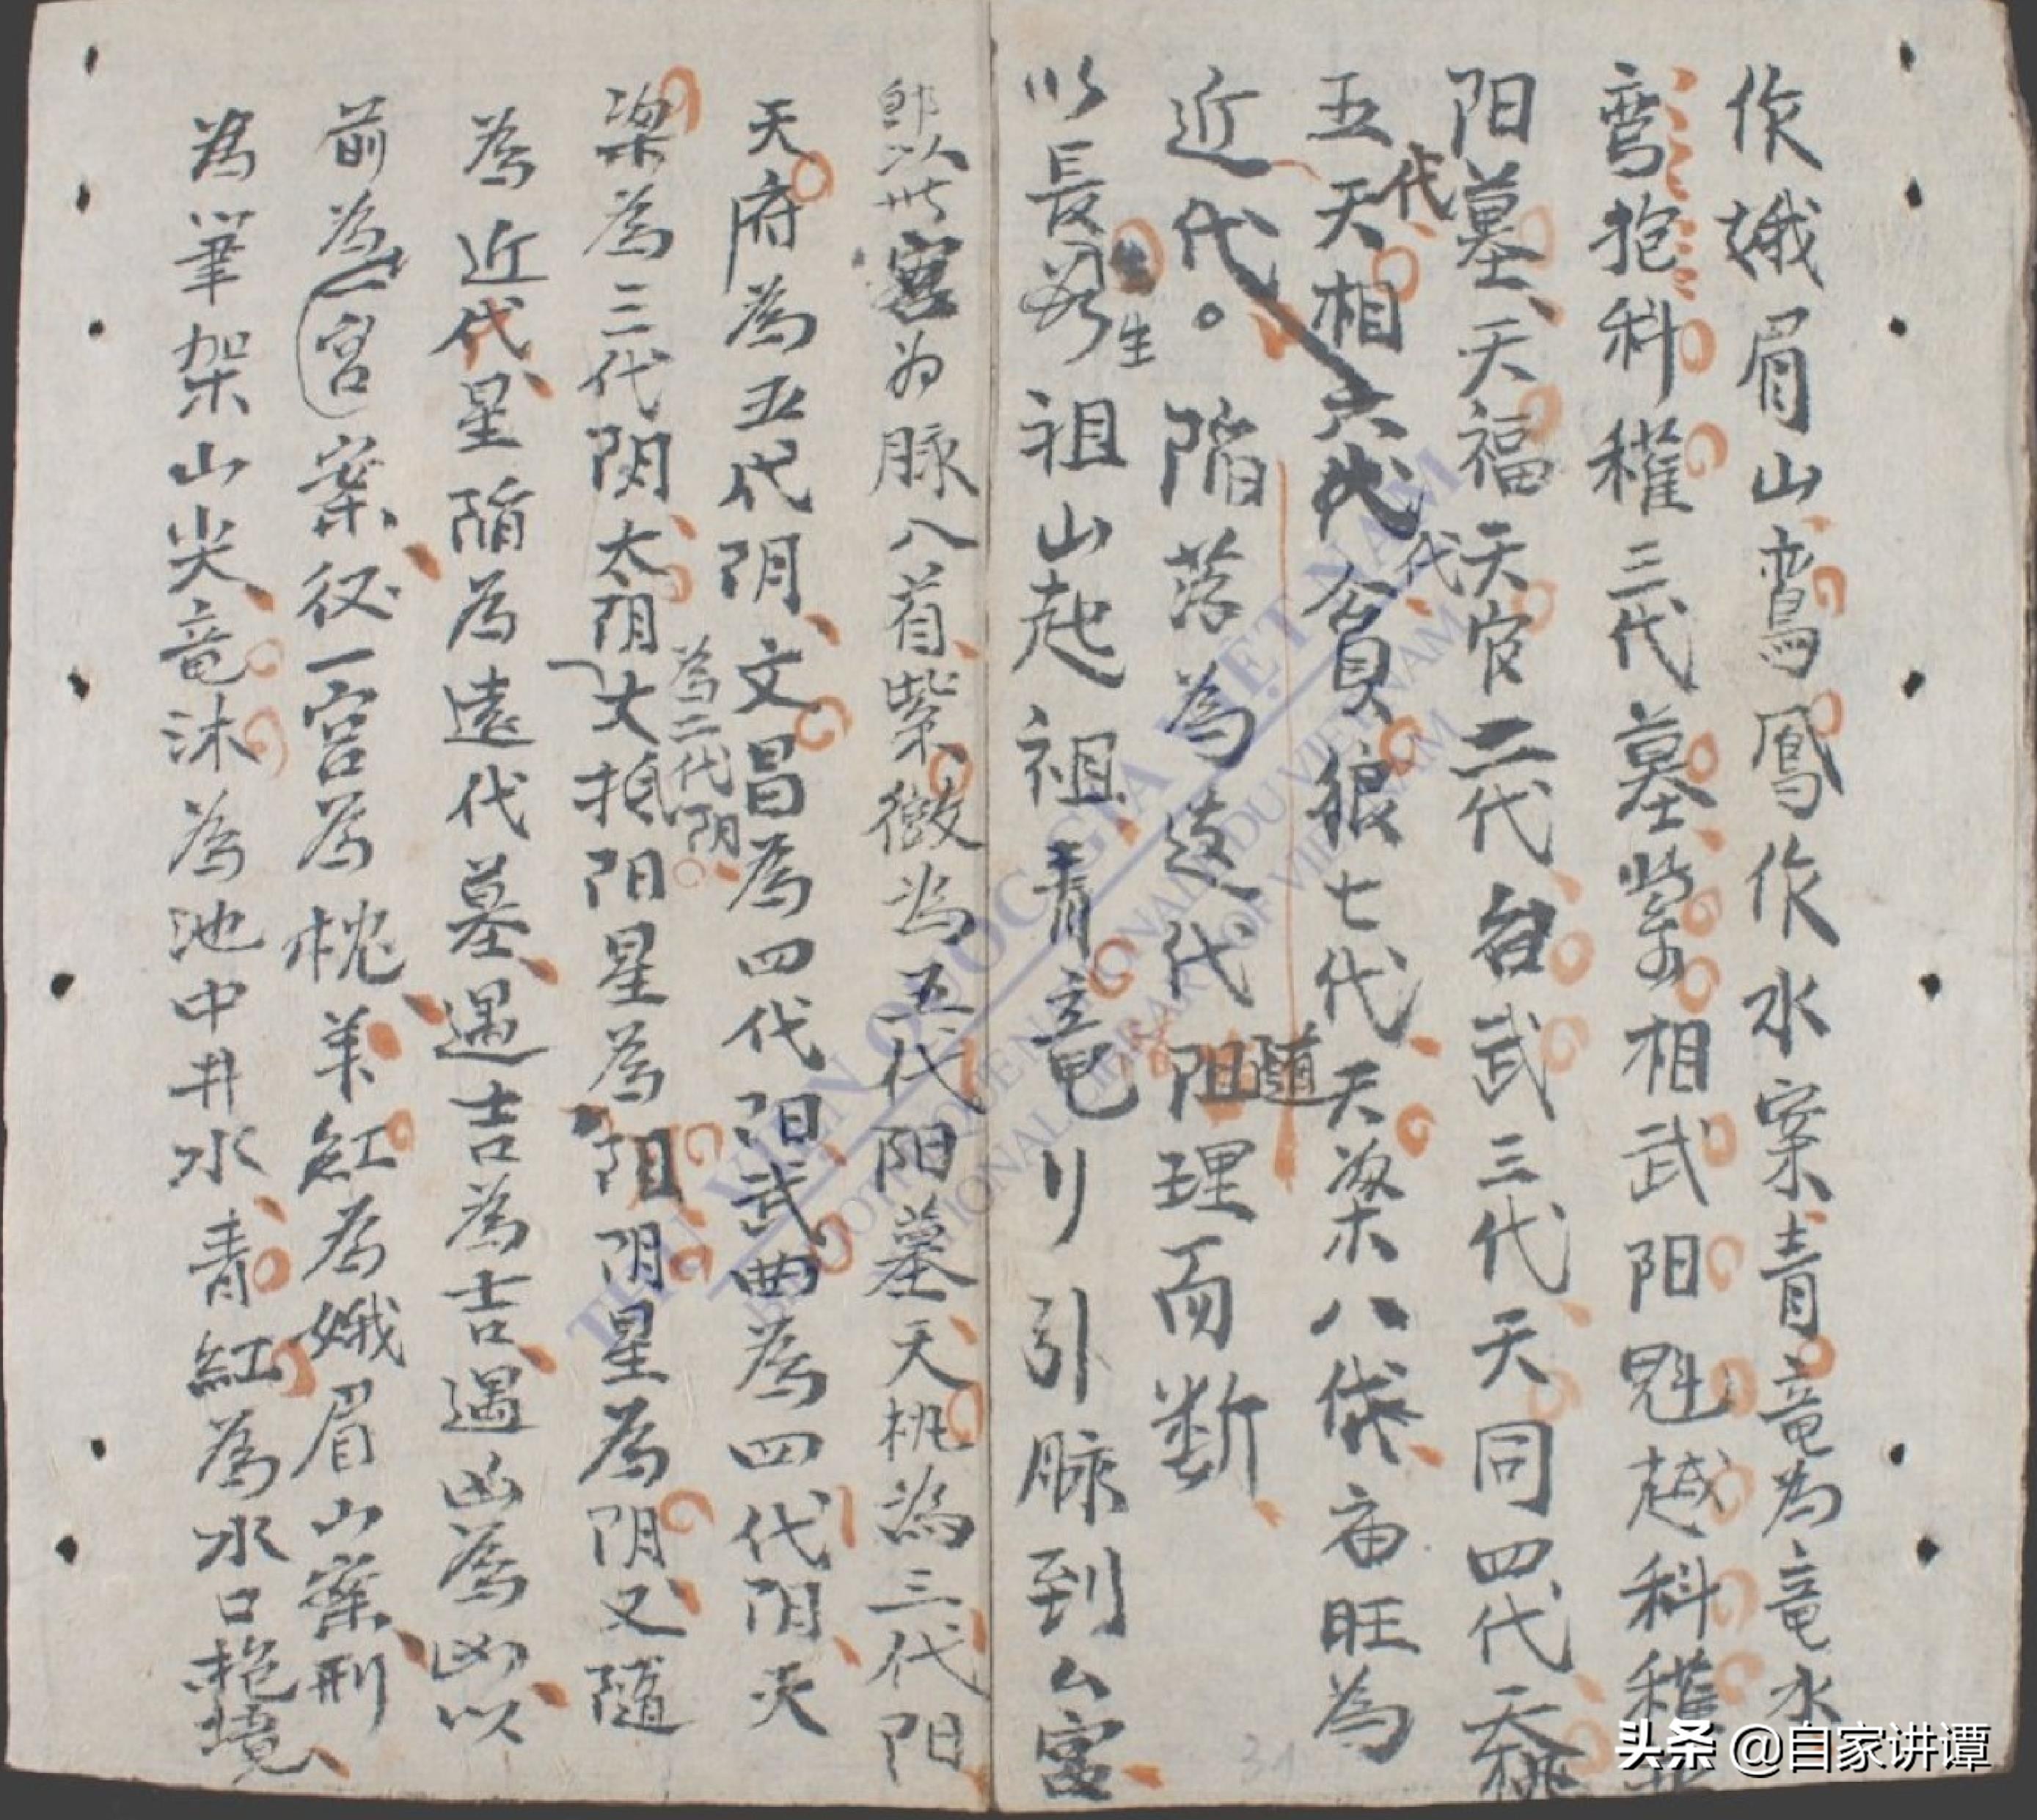 作娥眉山鸞鳳作水案青竜為竜水
弯抱科𫞂三代墓紫相武阳魁越科𫞂
阳墓天福天官二代台武三代天同四代天
五代天相六代貪狼七代天梁八代庙旺為
近代。陷落為遠代随理而断
以長生祖山起祖青竜引脉到宫
即以此宫为脉八首紫微為五代阳墓天机為三代阳
天府為五代阴文昌為四代阳武曲為四代阴天
梁為三代阴太阴為二代阴
阳星為阳阴星為阴又随
為近代星陷為遠代墓遇吉為吉遇凶為凶以
前為一宫案後一宫為枕羊紅為娥眉山案刑
為筆架山尖竜沐為池中井水青紅為水口抱境
THƯ VIỆN QUỐC GIA VIỆT NAM
NATIONAL LIBRARY OF VIETNAM
31
头条 @自家讲谭